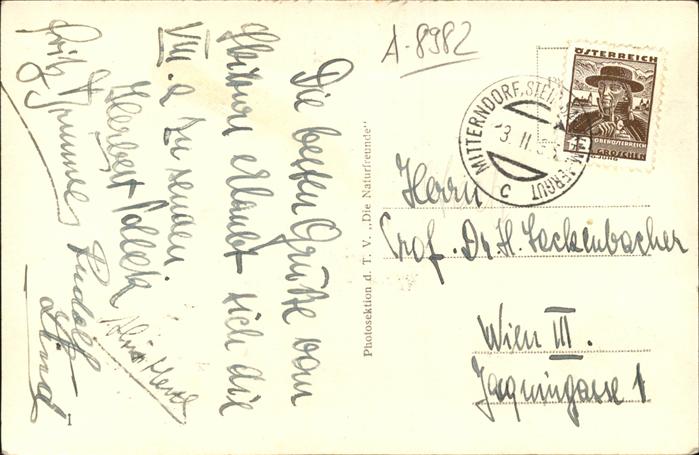 A-8982
ÖSTERREICH
OBERÖSTERREICH
GROSCHEN
MITTERNDORF, STEIR.
3. II. 3
Die besten Grüße vom
Skikurs erlaubt sich die
VIII. a zu senden.
Herbert
Fritz
Rudolf
Photosektion d. T. V. „Die Naturfreunde"
Herrn
Prof. Dr. H. Leckenbacher
Wien III.
Jaquingasse 1
1